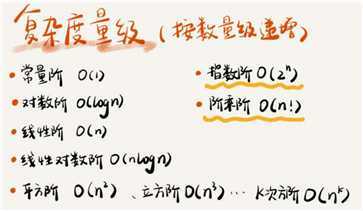 复杂度量级 (按数量级递增)
• 常量阶 O(1)
• 对数阶 O(logn)
• 线性阶 O(n)
• 线性对数阶 O(nlogn)
• 平方阶 O(n²) 、立方阶 O(n³) … K次方阶 O(nᵏ)
• 指数阶 O(2ⁿ)
• 阶乘阶 O(n!)